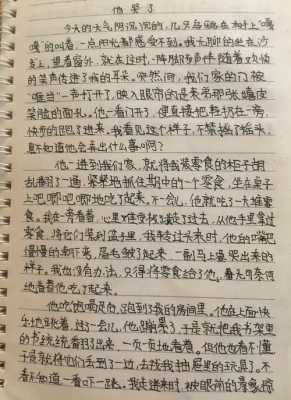 他哭了
今天的天气阴沉沉的，几只乌鸦在树上"嘎
嘎"的叫着，一点阳光都感受不到。我无聊的坐在沙
发上，望着窗外，就在这时，一阵脚步声伴随着欢快
的笑声传进了我的耳朵。突然间，我们家的门被
"哐当"一声打开了，映入眼帘的是弟弟那张嬉皮
笑脸的面孔。他一看门开了，便直接把鞋扔在一旁，
快步的跑了进来。我看见这个样子，不禁摇了摇头，
真不知道他会弄出什么事啊？
他一进到我们家，就将我装零食的柜子胡
乱翻了一通，紧紧地抓住其中的一个零食，坐在桌子
上吧唧吧唧地吃了起来。不一会儿，他就吃了一大堆零
食。我在一旁看着，心里难受极了，走了过去，从他手里拿过
零食，将它们装到篮子里，我再转过头来时，他的嘴吧
慢慢的向下弯，眉毛皱了起来，一副马上要哭出来的
样子。我也没有办法，只得将零食给了他，无可奈何
地看着他吃了起来。
他吃饱喝足后，跑到了我的房间里。他在上面快
乐地跳着，过了一会儿，他蹦累了，于是就把我书架里
的书统统翻了出来，一页一页地看着。但他也看不懂
于是就将他们丢到了一边，去找我抽屉里的玩具了。不
看不知道，一看吓一跳。我走进来时，被眼前的景象惊